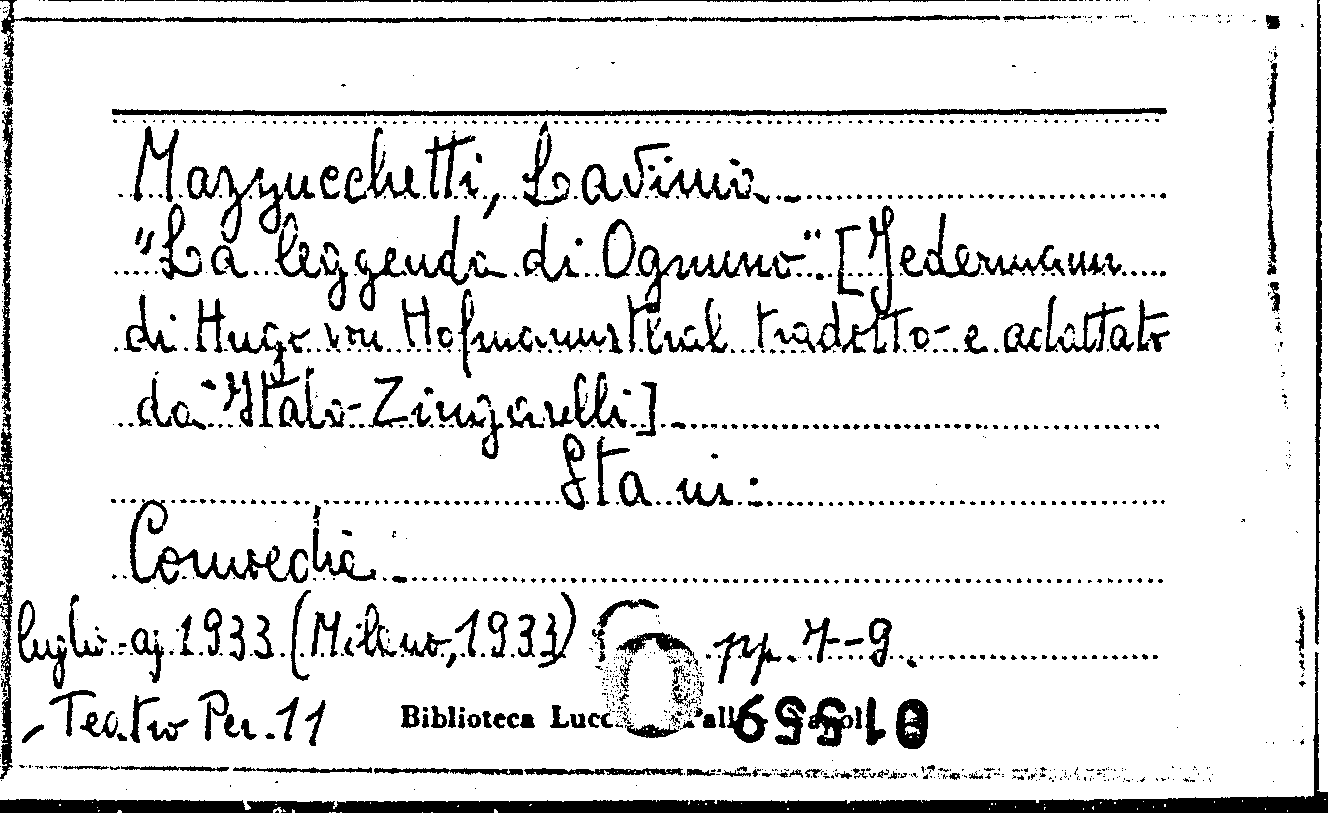 Mazzucchetti, Lavinia.
"La leggenda di Ognuno". [Jedermann
di Hugo von Hofmannsthal tradotto e adattato
da Italo Zingarelli].
Sta in:
Comoedia.
luglio-ag. 1933 (Milano, 1933) pp. 7-9.
- Teatro Per. 11
Biblioteca
01559